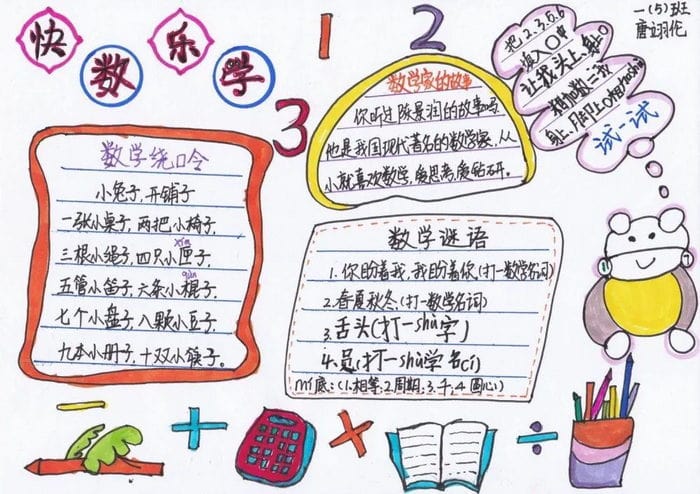 快
数
乐
学
1
2
3
一(5)班
唐翊伦
数学绕口令
小兔子,开铺子
一张小桌子,两把小椅子,
三根小绳子,四只小匣(xiá)子,
五管小笛子,六条小棍(gùn)子,
七个小盘子,八颗小豆子,
九本小册子,十双小筷子。
数学家的故事
你听过陈景润的故事吗
他是我国现代著名的数学家,从
小就喜欢数学,爱思考,爱钻研。
把1、2、3、5、6
填入〇中
让我头上、身上
试一试
数学谜语
1.你盼着我,我盼着你(打一数学名词)
2.春夏秋冬(打一数学名词)
3.舌头(打一shù字)
4.员(打一shù学名cí)
mí底:(1.相等;2.周期;3.千;4.圆心)